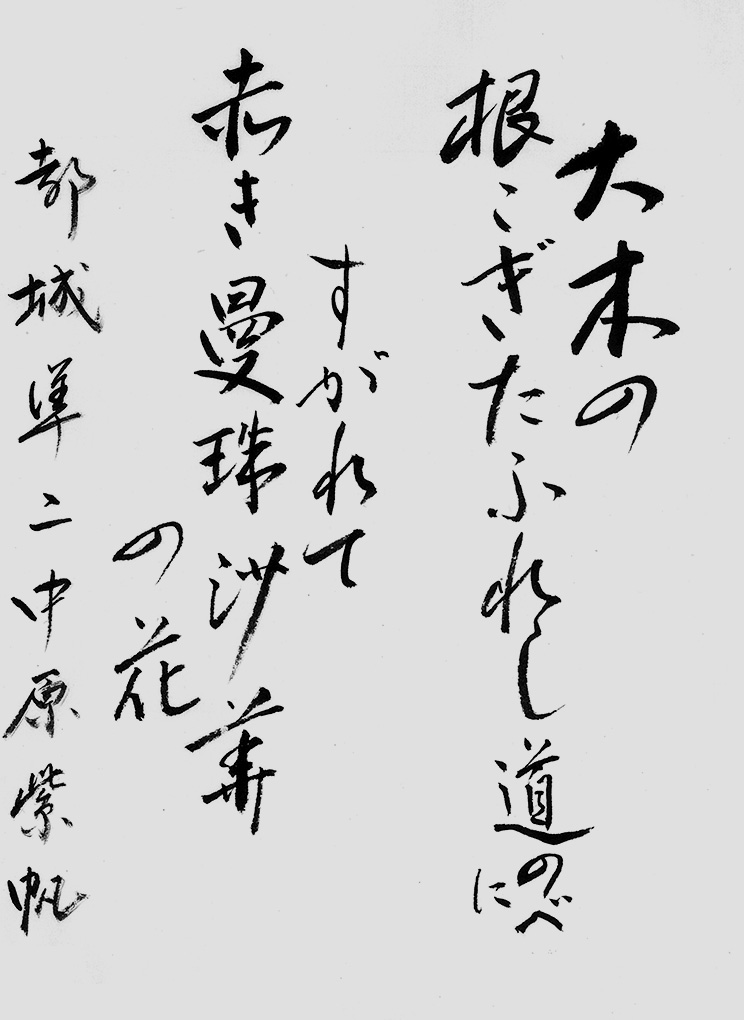 大木の
根こぎたふれし道のべに
すがれて
赤き曼珠沙華
の花
都城隼二中原紫帆